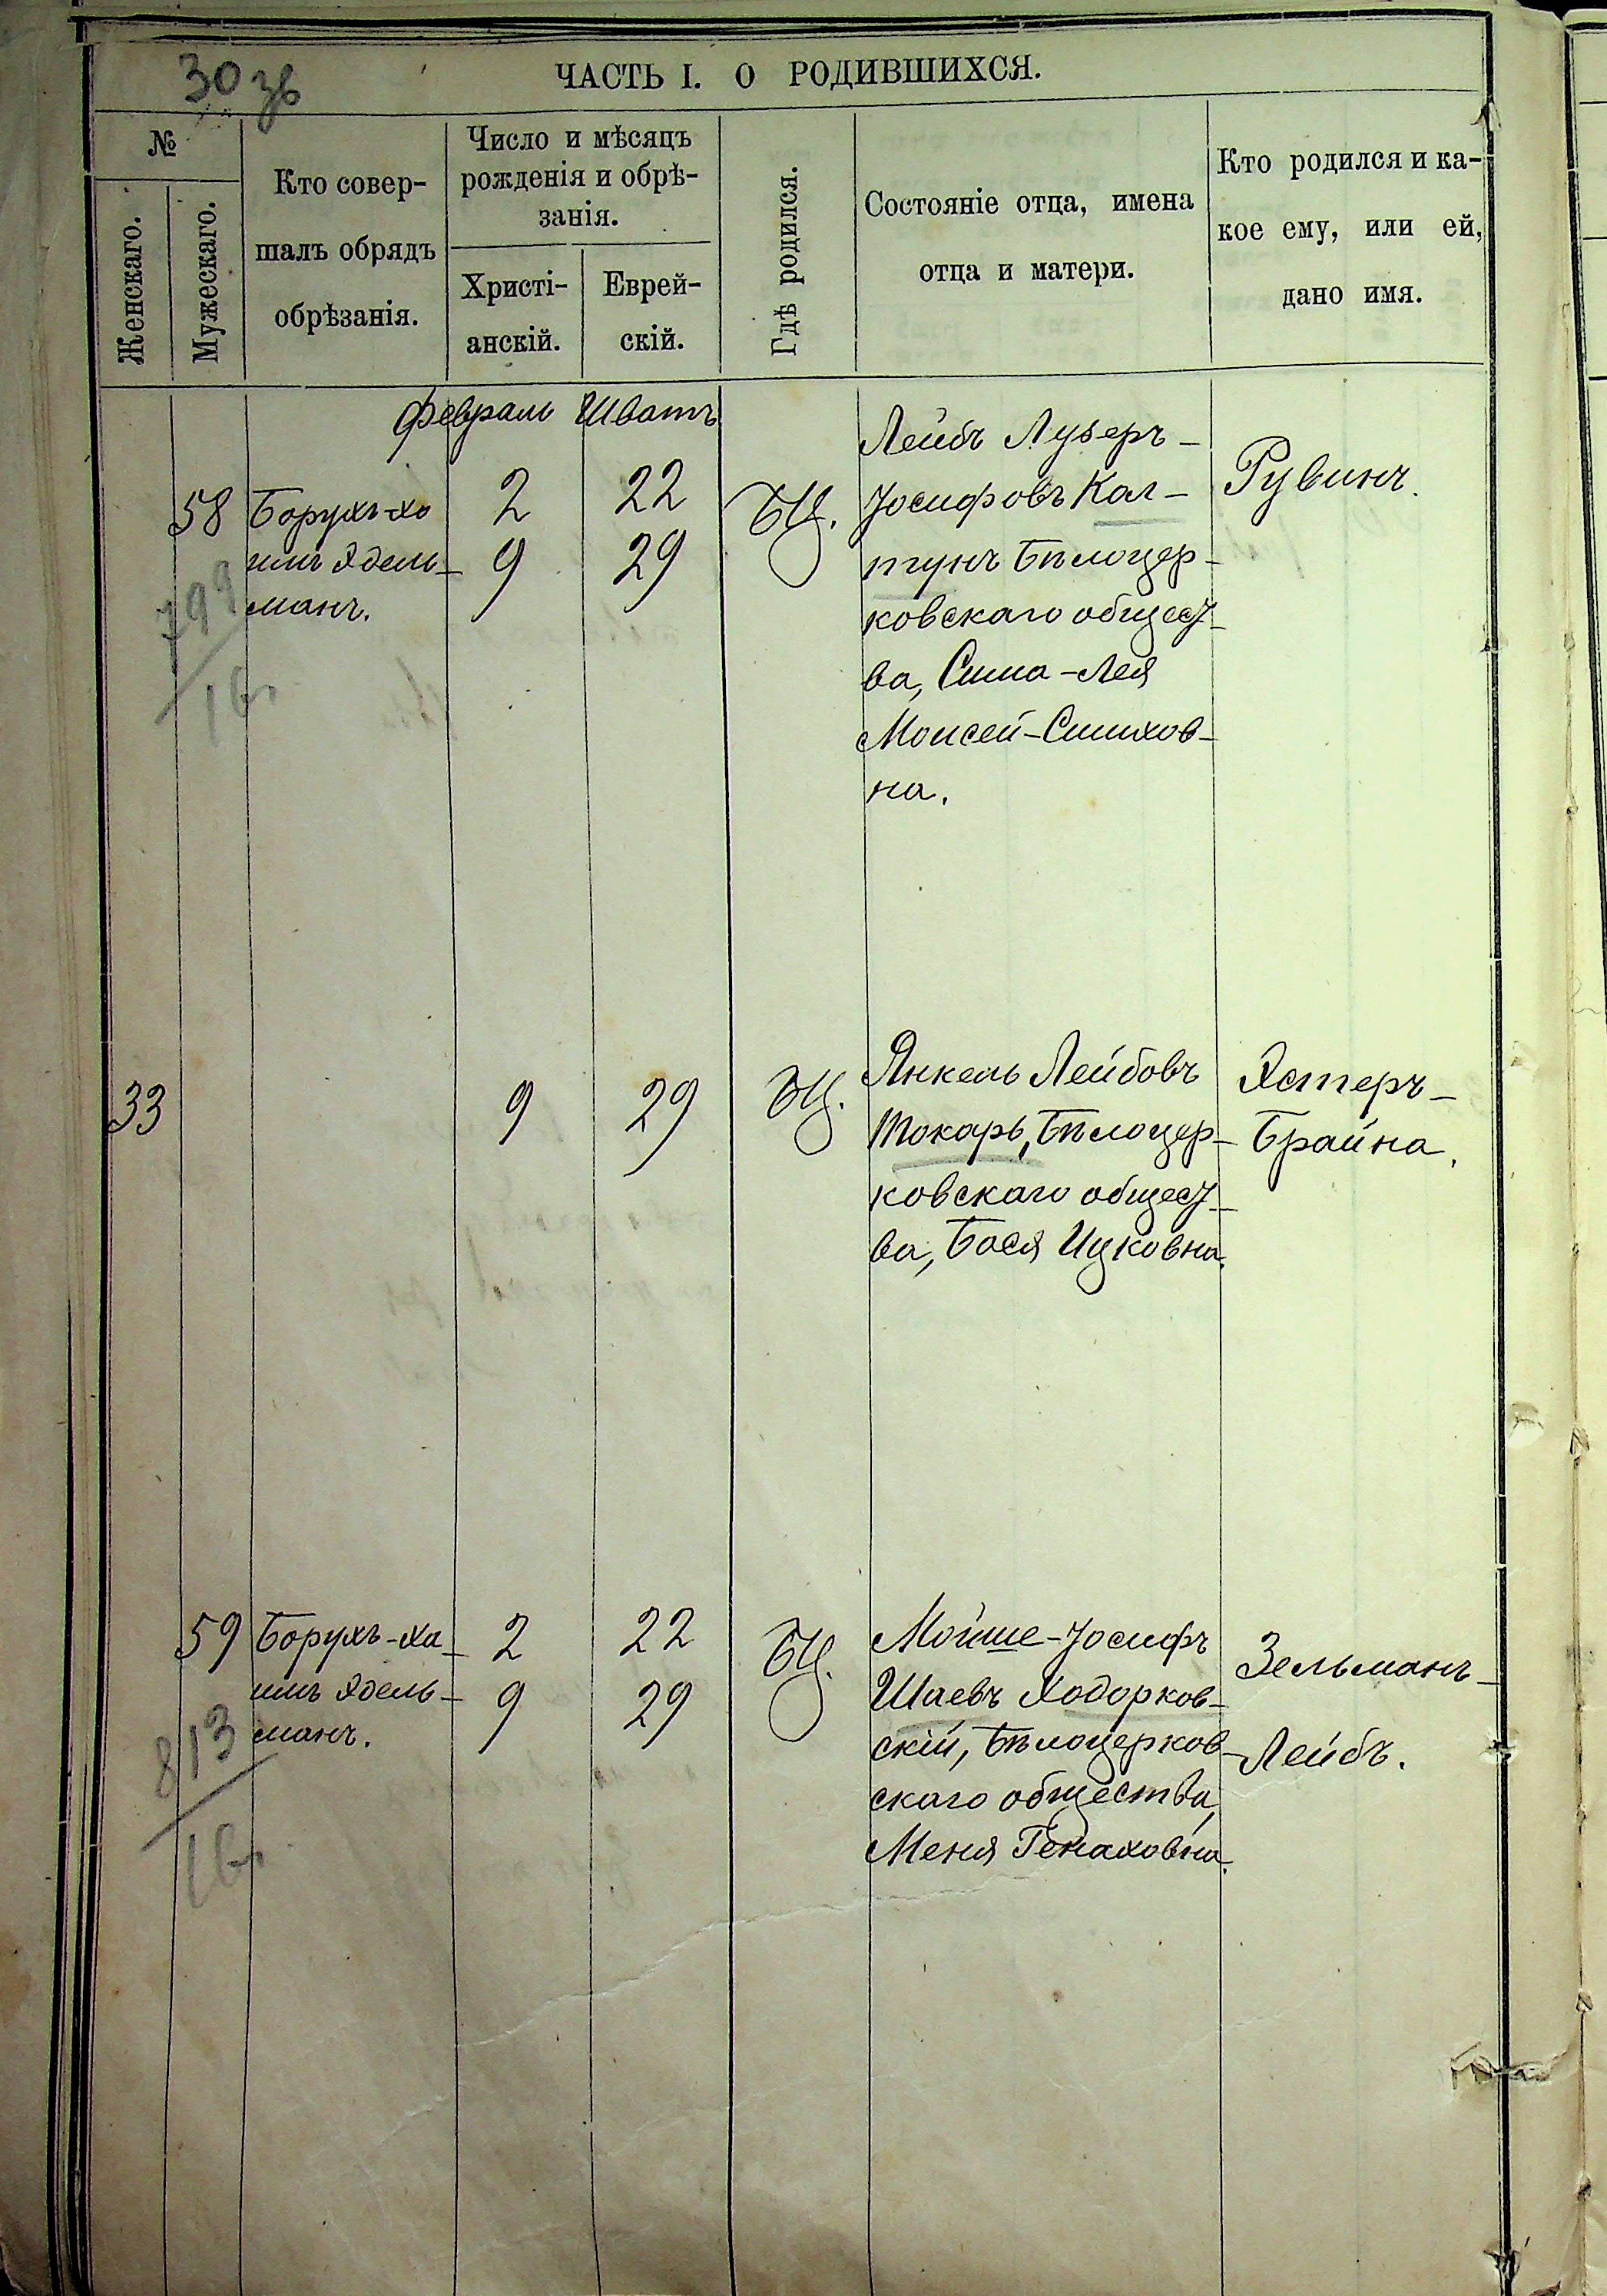 30 зв
ЧАСТЬ I. О РОДИВШИХСЯ.
№
Женскаго.
Мужескаго.
Кто совер-
шалъ обрядъ
обрѣзанія.
Число и мѣсяцъ
рожденія и обрѣ-
занія.
Христі-
анскій.
Еврей-
скій.
Гдѣ родился.
Состояніе отца, имена
отца и матери.
Кто родился и ка-
кое ему, или ей,
дано имя.
Февраль Шватъ
58
Борухъ-Ха
имъ Эдель-
манъ.
2 22
9 29
БЦ.
Лейбъ Лузеръ-
Іосифовъ Кал-
тунъ Бѣлоцер-
ковскаго общест-
ва, Сима-Лея
Моисей-Симхов-
на.
Рувинъ.
799
16г.
33
9 29
БЦ.
Янкель Лейбовъ
Токарь, Бѣлоцер-
ковскаго общест-
ва, Бася Ицковна.
Эстеръ-
Брайна.
59
Борухъ-Ха-
имъ Эдель-
манъ.
2 22
9 29
БЦ.
Мойше-Іосифъ
Шаевъ Ходорков-
скій, Бѣлоцерков-
скаго общества,
Меня Генаховна.
Зельманъ-
Лейбъ.
813
16г.